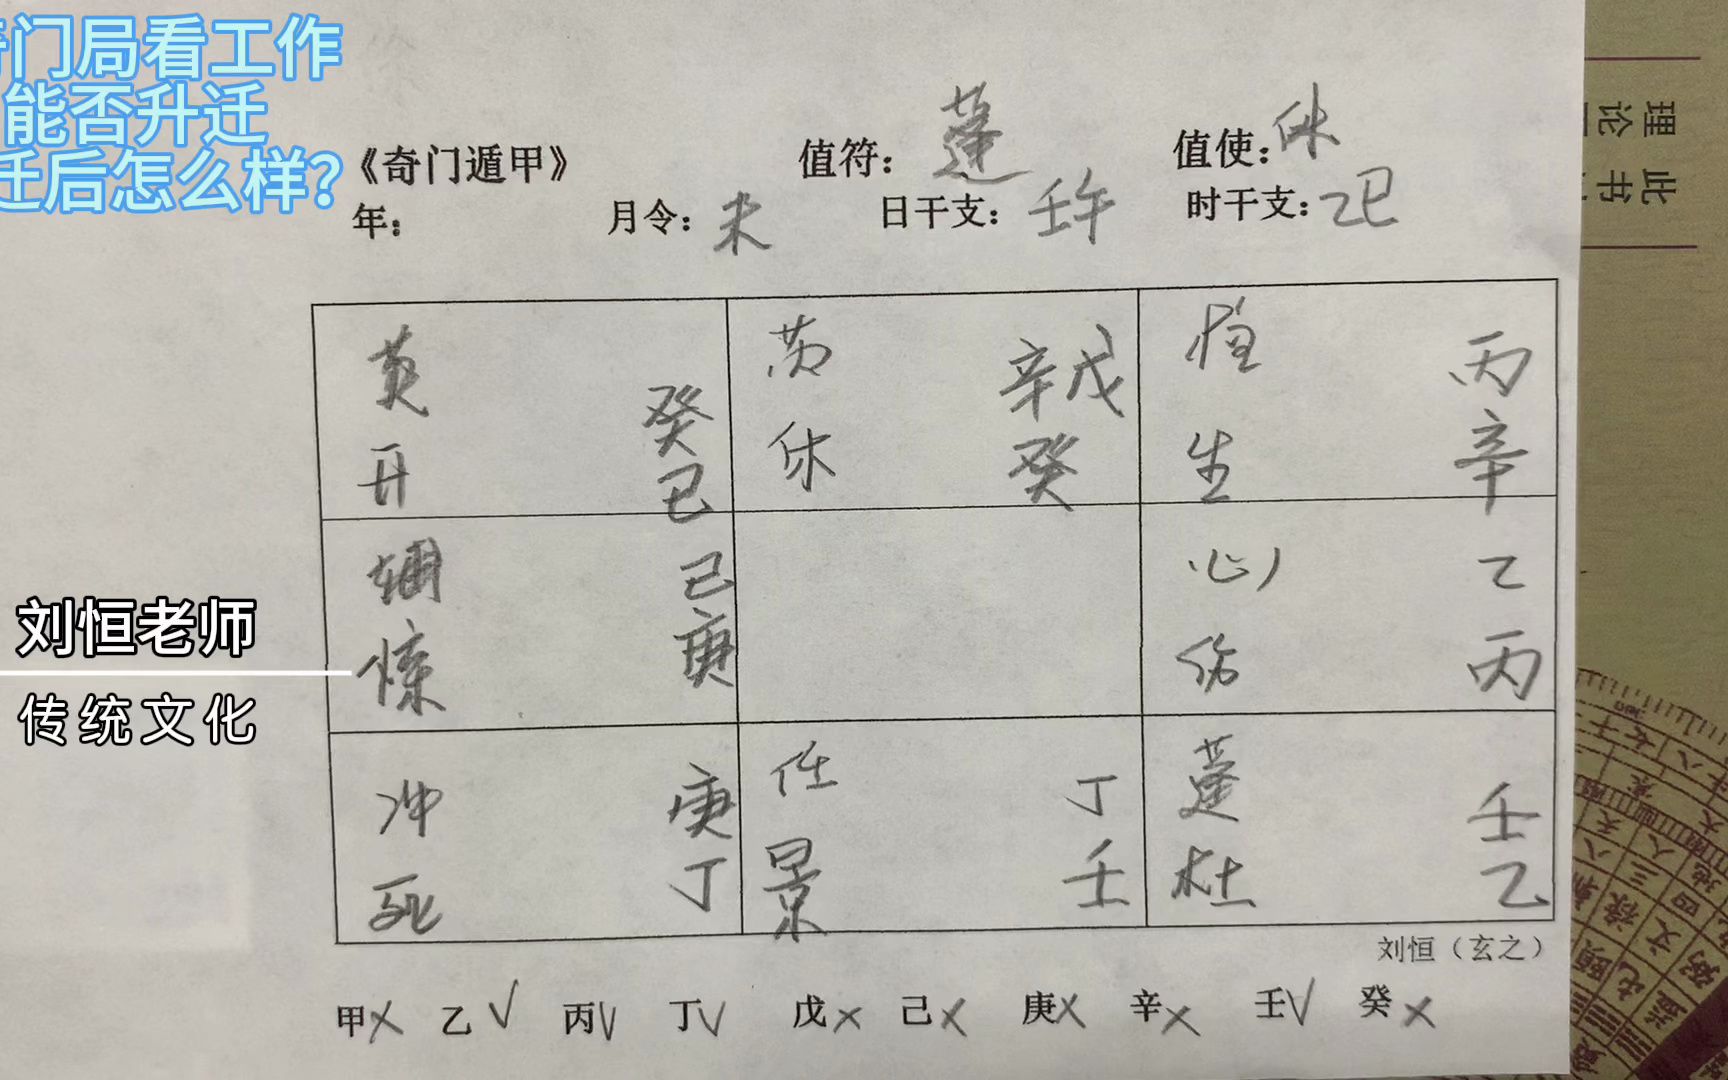 奇门局看工作
能否升迁
迁后怎么样？
《奇门遁甲》 值符： 蓬 值使： 休
年： 月令： 未 日干支： 壬午 时干支： 乙巳
英 癸 芮 辛戊 柱 丙
开 己 休 癸 生 辛
辅 己 心 乙
惊 庚 伤 丙
冲 庚 任 丁 蓬 壬
死 丁 景 壬 杜 乙
刘恒（玄之）
甲× 乙√ 丙√ 丁√ 戊× 己× 庚× 辛× 壬√ 癸×
刘恒老师
传统文化
理论
此书